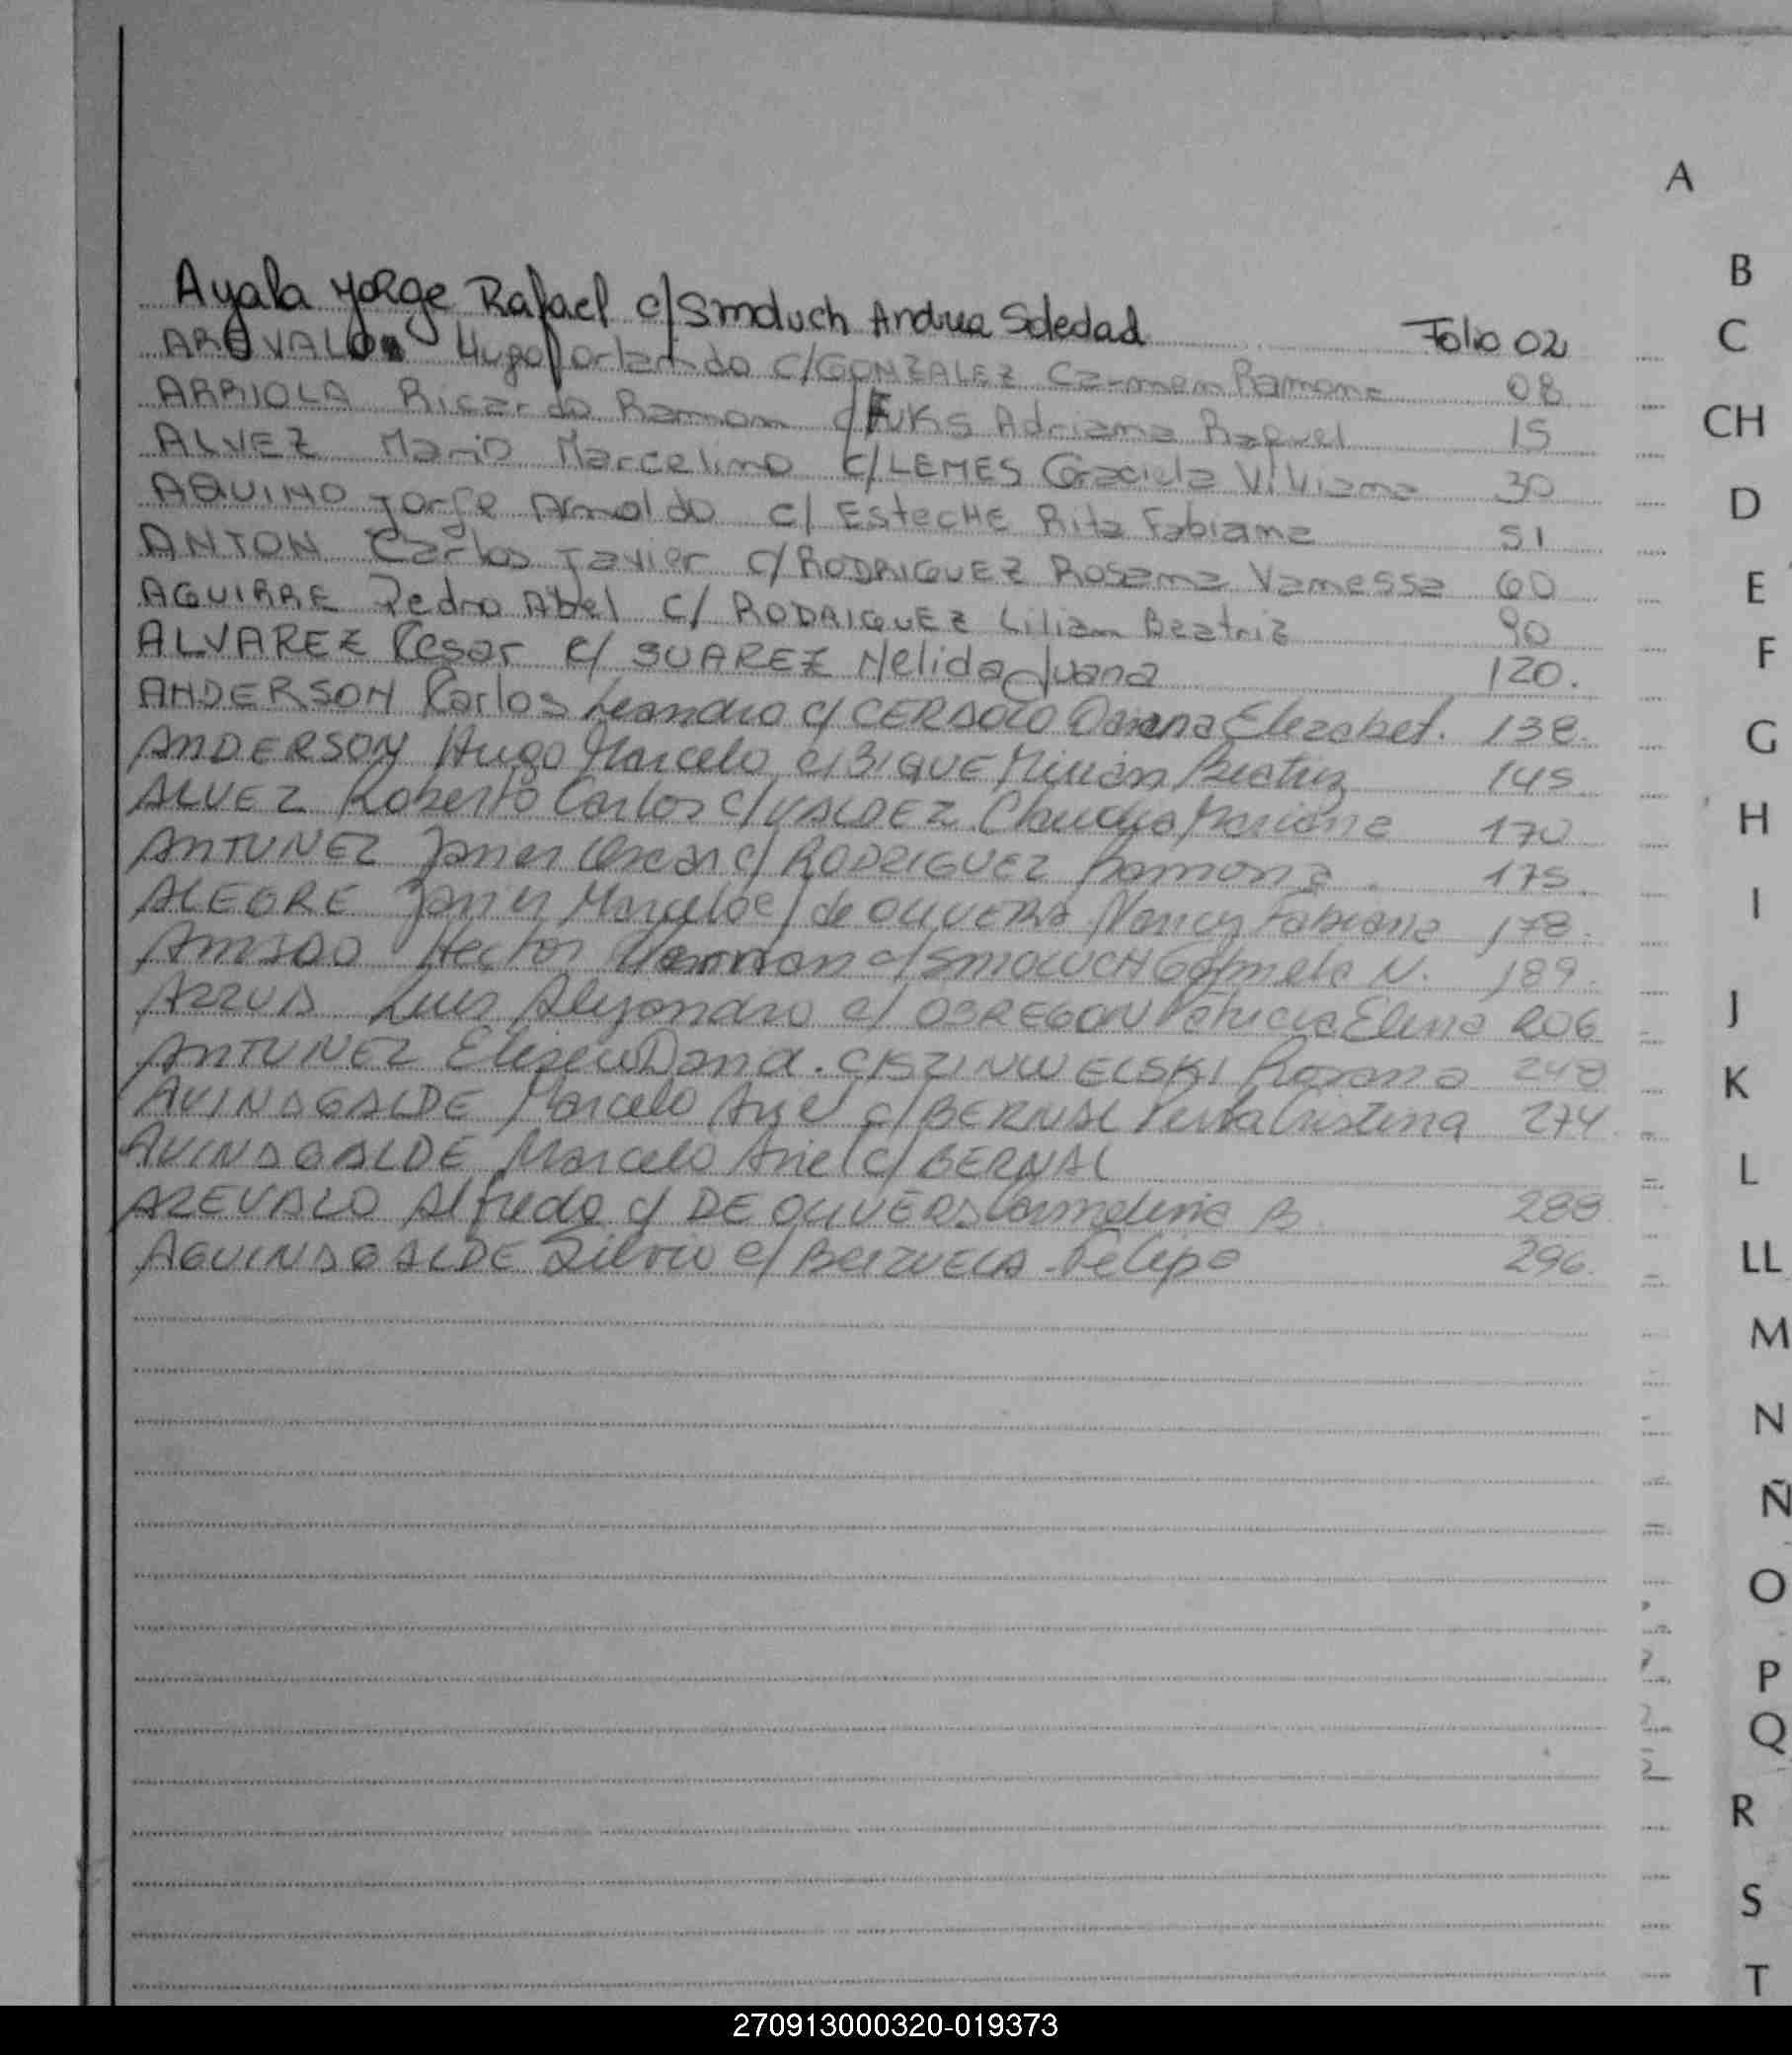 A
Ayala Jorge Rafael c/ Smoluch Andrea Soledad Folio 02
AREVALO Hugo Orlando C/ GONZALEZ Carmen Ramona 08
ARRIOLA Ricardo Ramon C/ FUKS Adriana Raquel 15
ALVEZ Mario Marcelino C/ LEMES Graciela Viviana 30
AQUINO Jorge Arnoldo C/ ESTECHE Rita Fabiana 51
ANTON Carlos Javier C/ RODRIGUEZ Rosana Vanessa 60
AGUIRRE Pedro Abel C/ RODRIGUEZ Lilian Beatriz 90
ALVAREZ Cesar C/ SUAREZ Nelida Juana 120.
ANDERSON Carlos Leandro c/ Elezabet. 138.
ANDERSON Hugo Marcelo c/ BIQUE Mirian Beatriz 145
ALVEZ Roberto Carlos c/ VALDEZ Claudia Mariana 170
ANTUNEZ Javier Oscar c/ RODRIGUEZ Ramona 175.
ALEGRE Javier Marcelo c/ de OLIVERA Nancy Fabiana 178.
Hector Hernan c/ SMOLUCH Gabriela N. 189.
Luis Alejandro c/ OBREGON Patricia Elena 206
ANTUNEZ Eliseo David. C/ Rosana 248
AVINAGALDE Marcelo Ariel c/ BERNAL Cristina 274
AVINAGALDE Marcelo Ariel c/ BERNAL
AREVALO Alfredo c/ DE OLIVERA B. 288
AGUINAGALDE Silvio c/ BERZUELA Felipa 296.
B
C
CH
D
E
F
G
H
I
J
K
L
LL
M
N
Ñ
O
P
Q
R
S
T
270913000320-019373